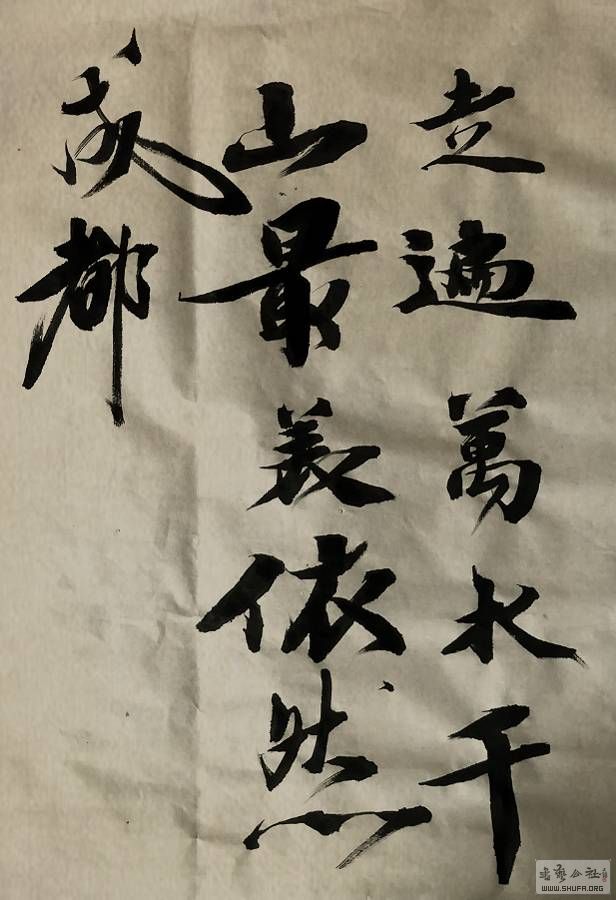 走遍萬水千
山最美依然
成都
书艺公社
WWW.SHUFA.ORG